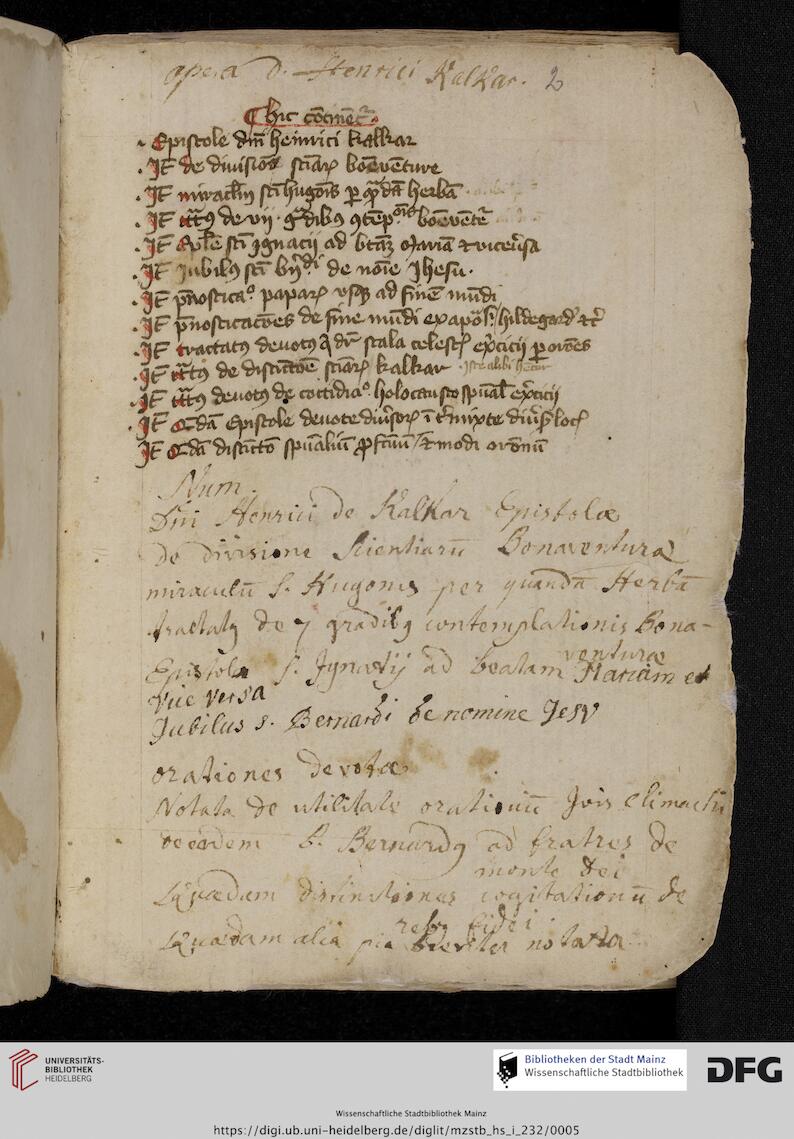 opera D. Henrici Kalkar. 2
Hic cōtinēt̄.
Epistole dn̄i heinrici kalkar
Jt̄ de divisiōe sciar̄ꝝ bōevēture
Jt̄ miracl̄m sc̄i hugōis ꝑ qͣdā herbā
Jt̄ tct̄ꝰ de vii gͣdibꝰ ꝯtēpl̄ōis bōevētͤ
Jt̄ Epl̄e sc̄i Ignacij ad btām Mariā et viceūsa
Jt̄ Jubilꝰ sc̄i bn̄di de nōie Jhesu.
Jt̄ pn̄ostica° papaꝝ vsqꝫ ad finē mūdi
Jt̄ pn̄osticacōes de fine mūdi ex apōl: hildegard̄ etc̄
Jt̄ tractatꝰ devotꝰ q̄ dr̄ scala celestꝭ ex̄citij ꝑ orōes
Jt̄ tct̄ꝰ de distinctōe sciaꝝ kalkar
Jt̄ tct̄ꝰ devotꝰ de cottidia° holocausto spūal' ex̄citij
Jt̄ Qdā Epistole devote diūsoꝝ īt̄mixte diūs̄ locꝭ
Jt̄ Qdā distinctō spūaliū ꝓfcuū et modi orōnū
Num.
Dn̄i Henrici de Kalkar Epistolæ
de divisione Scientiarū Bonaventuræ
miraculū S. Hugonis per quandā Herbā
tractatꝰ de 7 gradibꝰ contemplationis Bona-
venturæ
Epistola S. Jgnatij ad beatam Mariam et
vice versa
Jubilus s. Bernardi de nomine Jesu
orationes devotæ
Notata de utilitate orationū Jois Climachi
de eodem B. Bernardꝰ ad fratres de
monte Dei
Quædam distinctiones cogitationū de
rebꝰ fidei
Quædam alia pia breviter notata
UNIVERSITÄTS-
BIBLIOTHEK
HEIDELBERG
Bibliotheken der Stadt Mainz
Wissenschaftliche Stadtbibliothek
DFG
Wissenschaftliche Stadtbibliothek Mainz
https://digi.ub.uni-heidelberg.de/diglit/mzstb_hs_i_232/0005